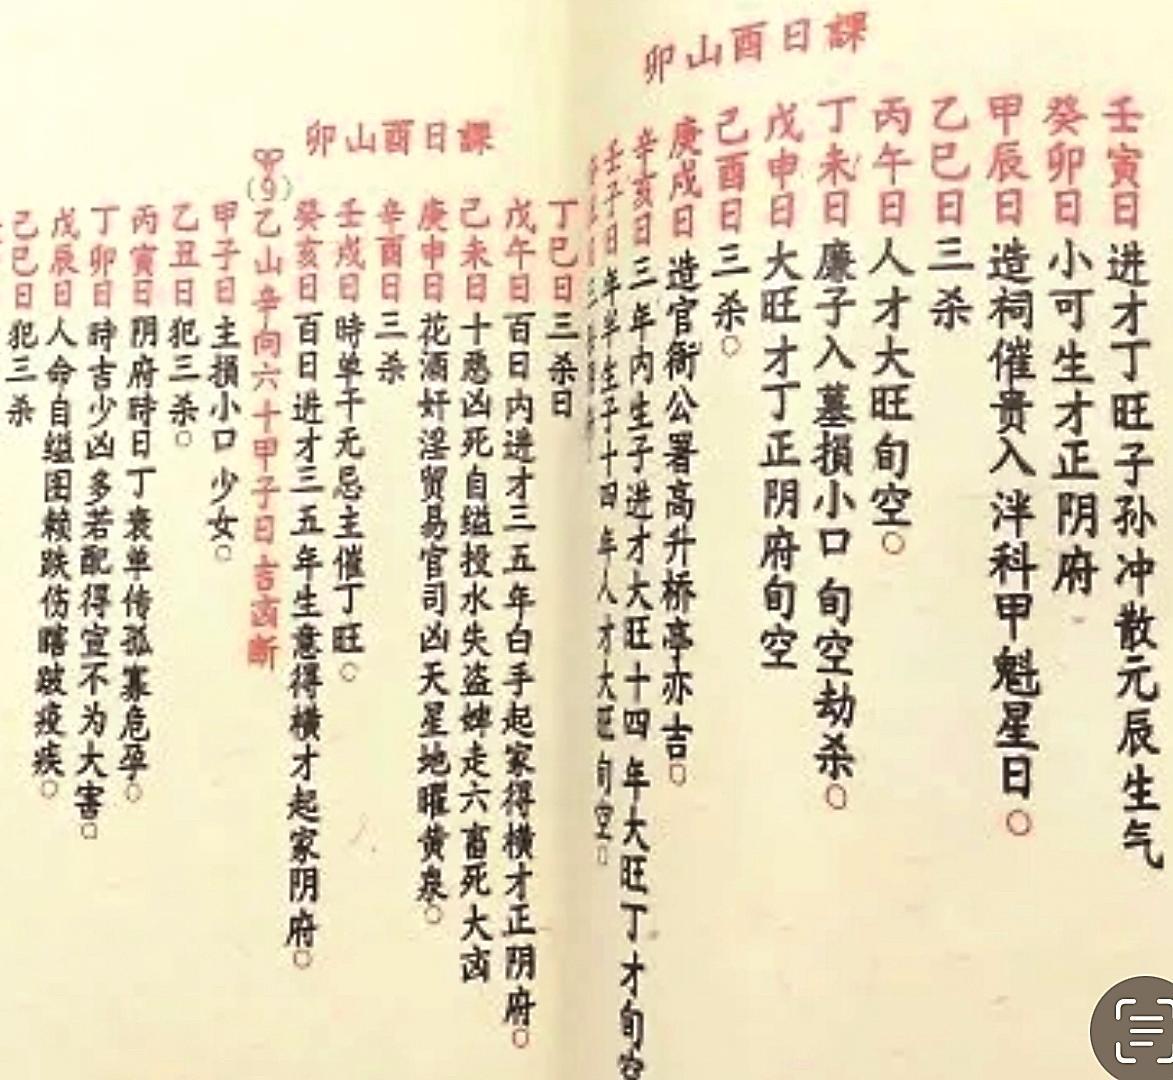 卯山酉日課
壬寅日进才丁旺子孙冲散元辰生气
癸卯日小可生才正阴府
甲辰日造祠催贵入泮科甲魁星日○
乙巳日三杀
丙午日人才大旺旬空○
丁未日廉子入墓損小口旬空劫杀○
戊申日大旺才丁正阴府旬空
己酉日三杀○
庚戌日造官衙公署高升桥亭亦吉○
辛亥日三年内生子进才大旺十四年大旺丁才旬空
壬子日年半生子十四年人才大旺旬空○
卯山酉日課
丁巳日三杀日
戊午日百日内进才三五年白手起家得横才正阴府○
己未日十恶凶死自缢投水失盗婢走六畜死大凶
庚申日花酒奸淫贸易官司凶天星地曜黄泉○
辛酉日三杀
壬戌日時单干无忌主催丁旺○
癸亥日百日进才三五年生意得横才起家阴府○
(9)乙山辛向六十甲子日吉凶断
甲子日主損小口少女○
乙丑日犯三杀○
丙寅日阴府時日丁衰单传孤寡危孕○
丁卯日時吉少凶多若配得宜不为大害○
戊辰日人命自缢图赖跌伤瞎跛疫疾○
己巳日犯三杀